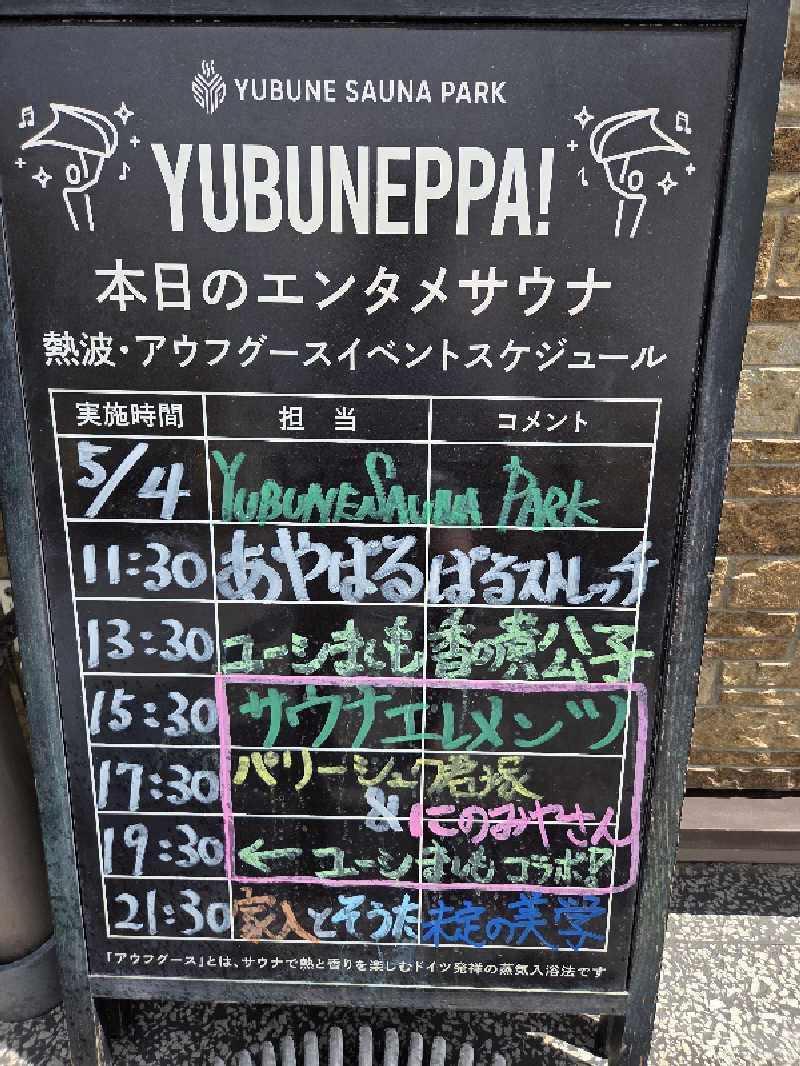 YUBUNE SAUNA PARK
YUBUNEPPA!
本日のエンタメサウナ
熱波・アウフグースイベントスケジュール
実施時間 担当 コメント
5/4 YUBUNE SAUNA PARK
11:30 あやばる ばるストレッチ
13:30 ユーシましも 香の貴公子
15:30 サウナエレメンツ
17:30 パリーシュウ君塚
& にのみやさん
19:30 ← ユーシましも コラボ!
21:30 家入とそうた 未定の美学
「アウフグース」とは、サウナで熱と香りを楽しむドイツ発祥の蒸気入浴法です